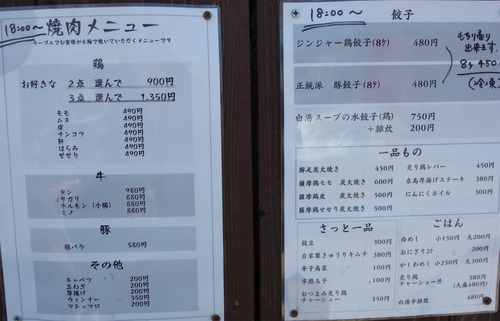 18:00～
焼肉メニュー
テーブルでお客様が七輪で焼いていただくメニューです
鶏
お好きな 2点 選んで 900円
3点 選んで 1,350円
モモ 490円
ムネ 490円
皮 490円
ナンコツ 490円
肝 490円
はらみ 490円
せせり 490円
牛
タン 980円
サガリ 880円
ホルモン(小腸) 880円
ミノ 880円
豚
豚バラ 580円
その他
キャベツ 200円
玉ねぎ 200円
厚揚げ 200円
ウィンナー 350円
マシュマロ 200円
18:00～
餃子
ジンジャー鶏餃子(8ケ) 480円
正統派 豚餃子(8ケ) 480円
もち帰り
出来ます。
8ケ 450
白湯スープの水餃子(鶏) 750円
+雑炊 200円
一品もの
豚足炭火焼き 450円
薩摩鶏モモ 炭火焼き 600円
薩摩鶏皮 炭火焼き 500円
薩摩鶏せせり炭火焼き 500円
炙り鶏レバー 450円
糸島厚揚げステーキ 380円
にんにくホイル 300円
さっと一品
枝豆 300円
自家製きゅうりキムチ 380円
辛子高菜 100円
半熟玉子 100円
おつまみ炙り鶏
チャーシュー 350円
ごはん
白めし 小150円 大200円
おにぎり2ケ 200円
やしわめし 小250円 大300円
炙り鶏 380円
チャーシュー丼 (大盛480円)
白湯辛雑炊 480円